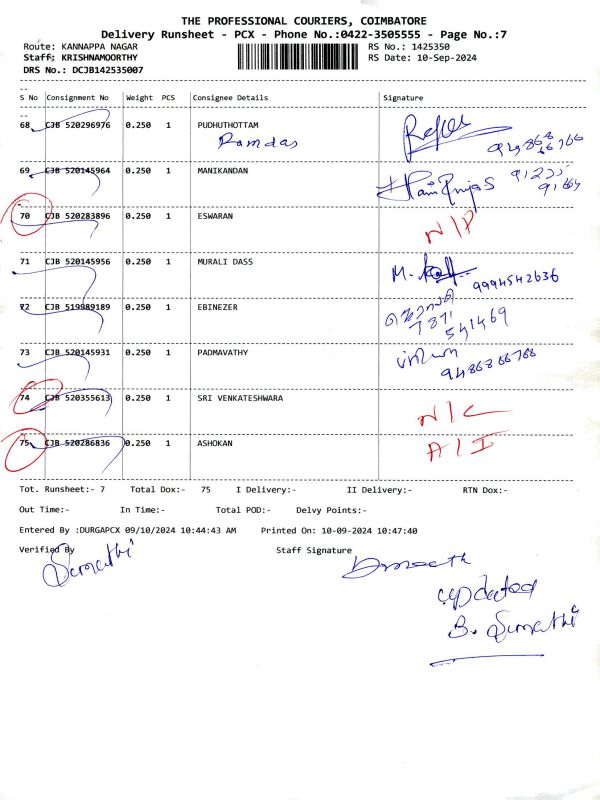 THE PROFESSIONAL COURIERS, COIMBATORE
Delivery Runsheet - PCX - Phone No.:0422-3505555 - Page No.:7
Route: KANNAPPA NAGAR RS No.: 1425350
Staff: KRISHNAMOORTHY RS Date: 10-Sep-2024
DRS No.: DCJB142535007
S No Consignment No Weight PCS Consignee Details Signature
68 CJB 520296976 0.250 1 PUDHUTHOTTAM
Ramdas
69 CJB 520145964 0.250 1 MANIKANDAN
70 CJB 520283896 0.250 1 ESWARAN N/P
71 CJB 520145956 0.250 1 MURALI DASS M. 9994542636
72 CJB 519989189 0.250 1 EBINEZER
7871
541469
73 CJB 520145931 0.250 1 PADMAVATHY
9486866766
74 CJB 520355613 0.250 1 SRI VENKATESHWARA N/C
75 CJB 520286836 0.250 1 ASHOKAN A/I
Tot. Runsheet:- 7 Total Dox:- 75 I Delivery:- II Delivery:- RTN Dox:-
Out Time:- In Time:- Total POD:- Delvy Points:-
Entered By :DURGAPCX 09/10/2024 10:44:43 AM Printed On: 10-09-2024 10:47:40
Verified By Staff Signature
Sumathi
updated
B. Sumathi